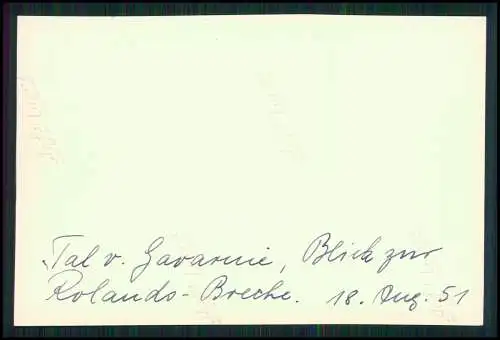 Tal v. Gavarnie, Blick zur
Rolands-Breche. 18. Aug. 51